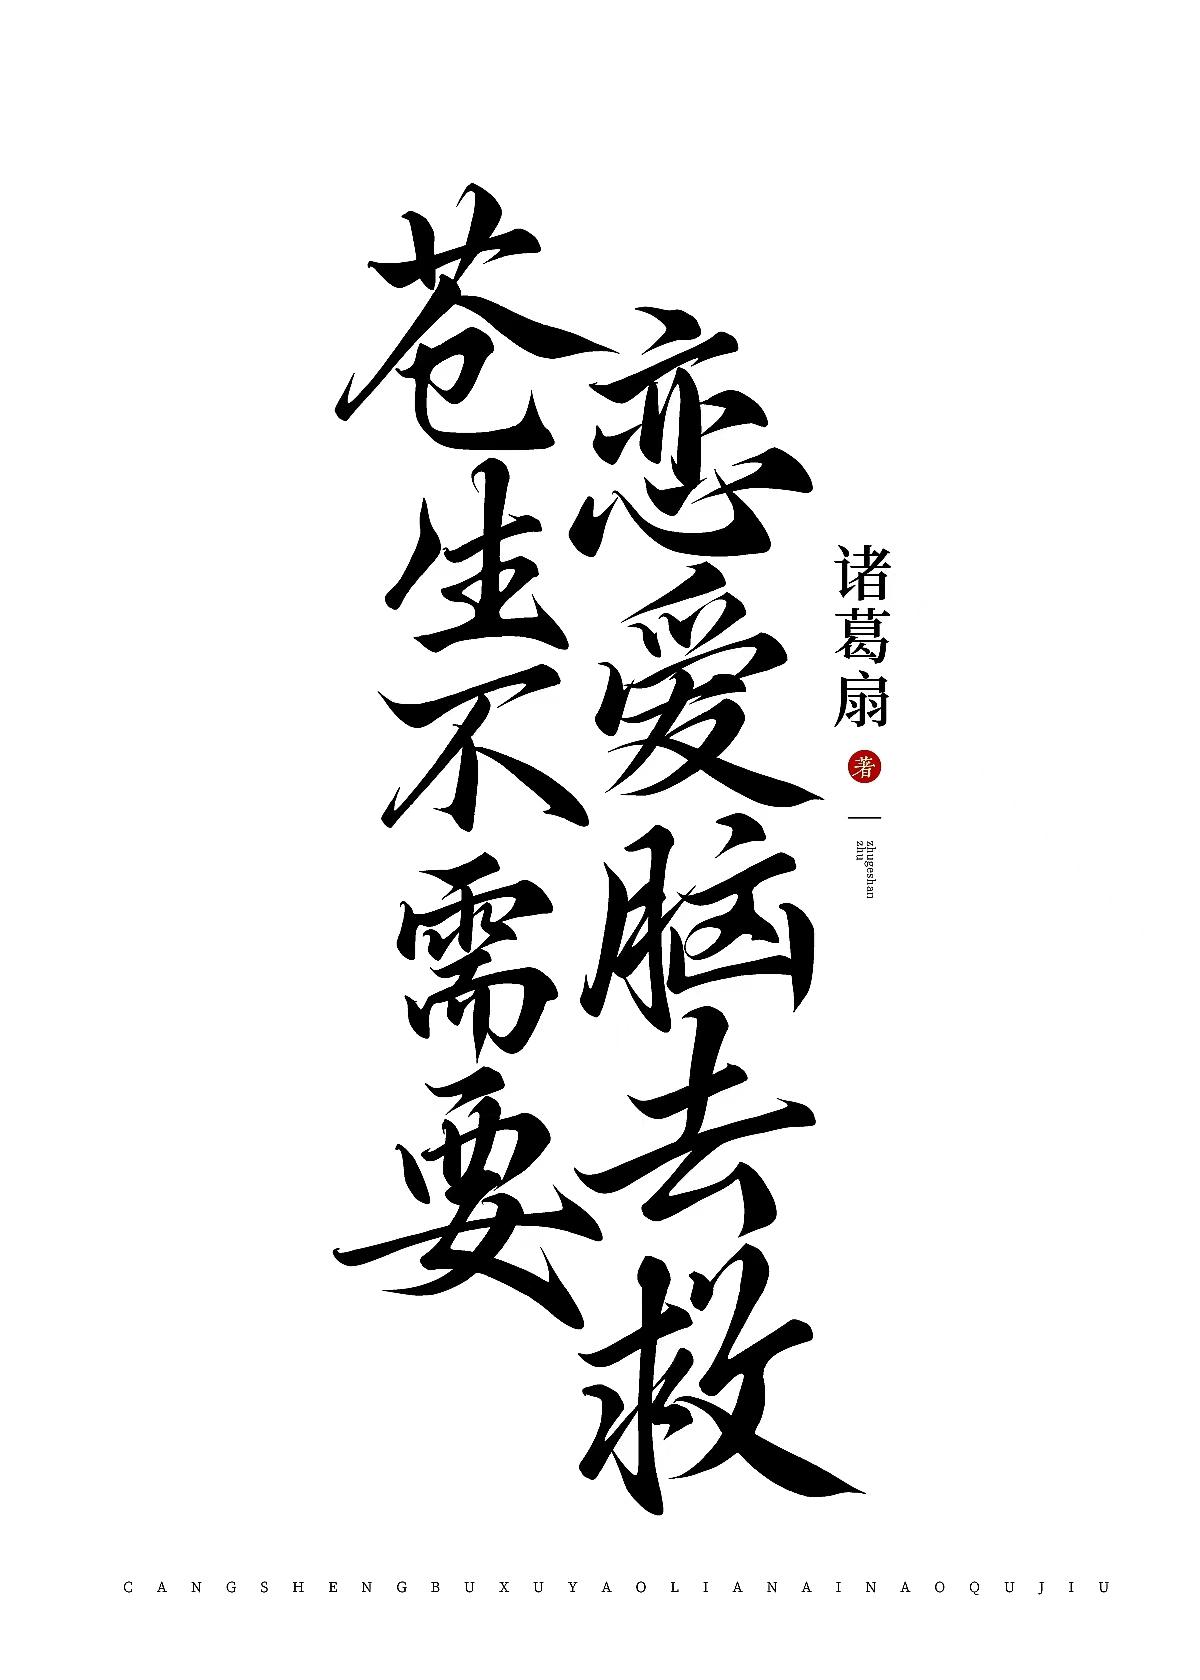 苍生不需要
恋爱脑去救
诸葛扇
著
zhugeshan
zhu
CANGSHENGBUXUYAOLIANAINAOQUJIU